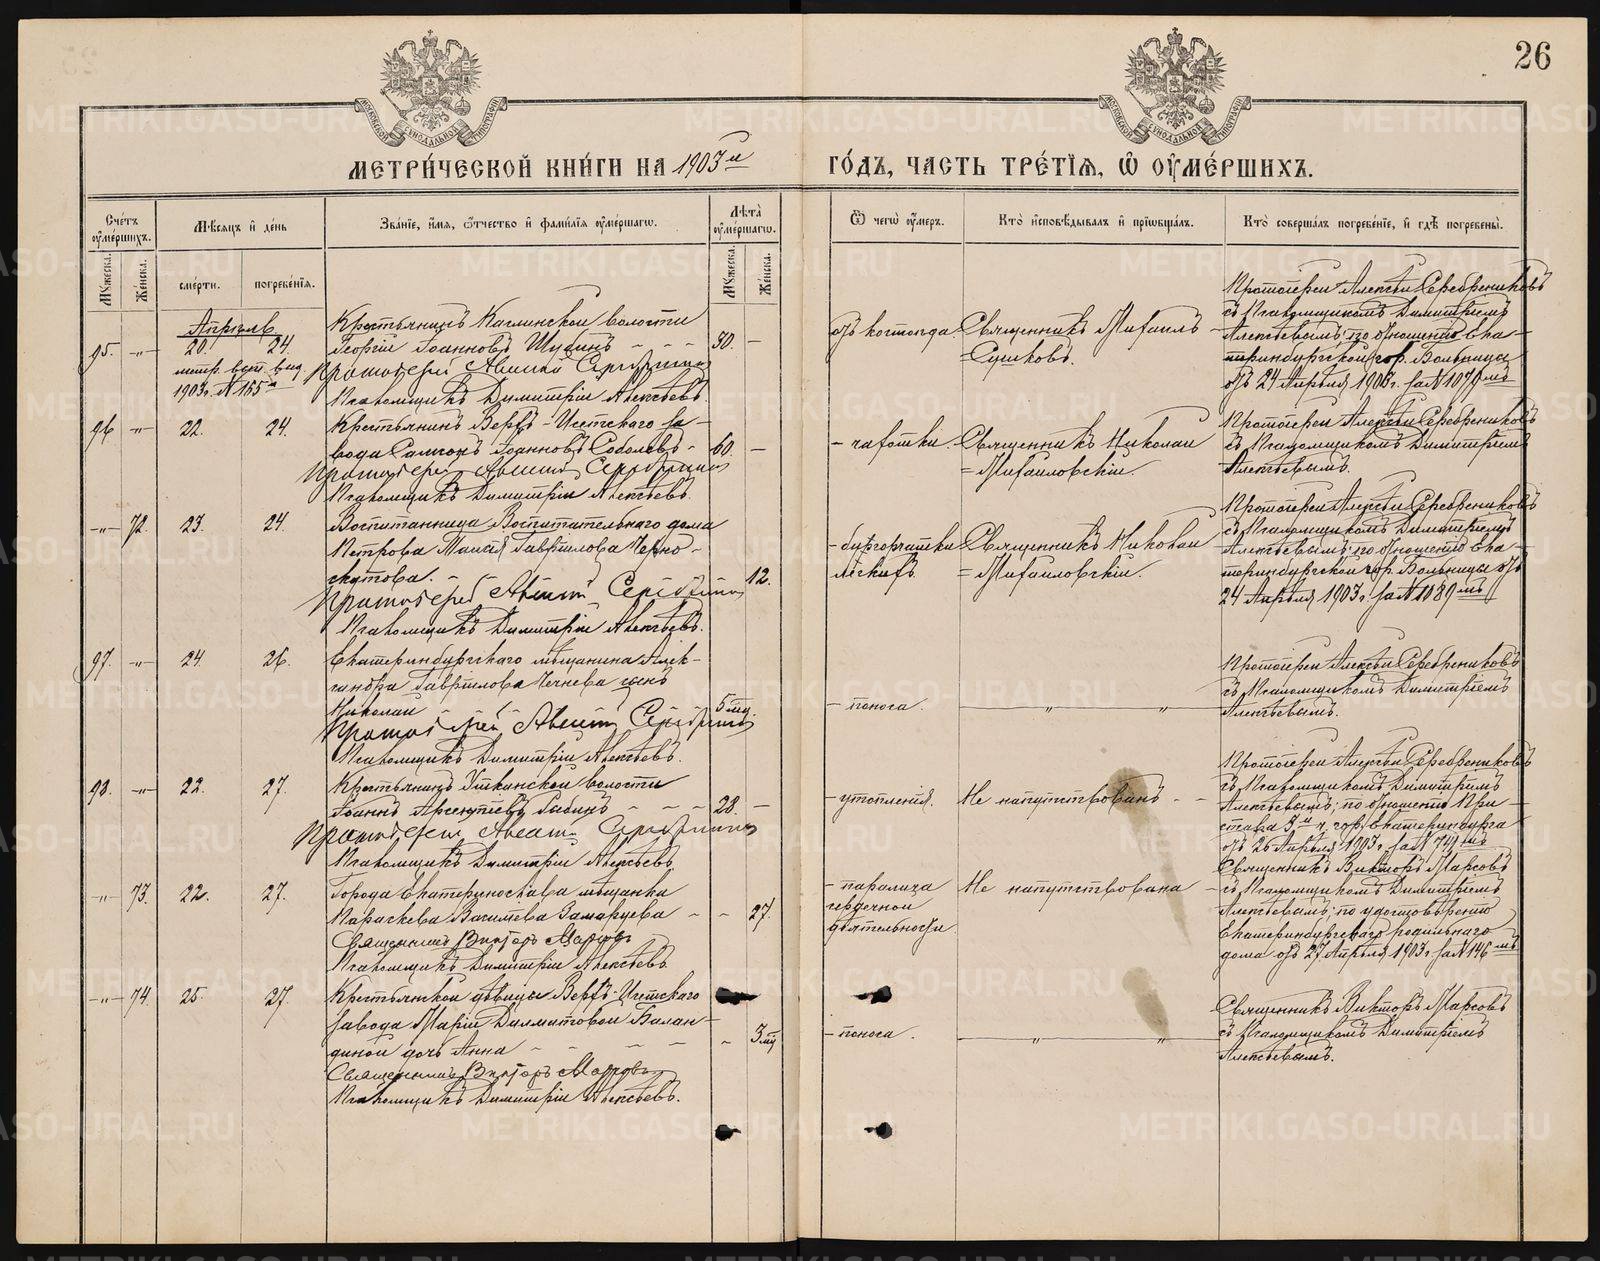 26
МЕТРИ́ЧЕСКОЙ КНИ́ГИ НА 1903й ГО́ДЪ, ЧАСТЬ ТРЕ́ТІѦ, Ѡ ОУМЕ́РШИХЪ.
Счетъ оумершихъ.
Мѣсяцъ и день
Званіе, имя, отчество и фамилія оумершагω.
Лѣта оумершагω.
Ѿ чегω оумеръ.
Кто исповѣдывалъ и пріωбщалъ.
Кто совершалъ погребеніе, и гдѣ погребены.
Мужеска.
Женска.
смерти.
погребенія.
Мужеска.
Женска.
Апрѣль
95. -„- 20. 24.
1903г. № 155
Крестьянинъ Каслинской волости
Георгій Іоанновъ - - -
50. -
Протоіерей Алексій
Псаломщикъ Димитрій Алексѣевъ.
Священникъ Михаилъ
Сушковъ.
Протоіерей Алексѣй Серебрениковъ
съ Псаломщикомъ Димитріемъ
Алексѣевымъ; по отношенію Ека-
теринбургской гор. Больницы
отъ 24 Апрѣля 1903г. за № 1079мъ
96 -„- 22. 24.
Крестьянинъ Верхъ-Исетскаго за-
вода Самсонъ Іоанновъ Соболевъ -
60. -
Протоіерей Алексій
Псаломщикъ Димитрій Алексѣевъ.
- чахотки.
Священникъ Николай
= Михайловскій.
Протоіерей Алексѣй Серебрениковъ
съ Псаломщикомъ Димитріемъ
Алексѣевымъ.
-„- 72. 23. 24.
Воспитанница Воспитательнаго дома
Петрова Таисія Гаврилова Черно-
скутова. -
12.
Протоіерей Алексій
Псаломщикъ Димитрій Алексѣевъ.
- бугорчатки
легкихъ
Священникъ Николай
= Михайловскій.
Протоіерей Алексѣй Серебрениковъ
съ Псаломщикомъ Димитріемъ
Алексѣевымъ; по отношенію Ека-
теринбургской гор. Больницы отъ
24 Апрѣля 1903г. за № 1089мъ
97. -„- 24. 26.
Екатеринбургскаго мѣщанина Алек-
сандра Гаврилова сынъ
Николай
5 мц.
Протоіерей Алексій
Псаломщикъ Димитрій Алексѣевъ.
- поноса.
„ „
Протоіерей Алексѣй Серебрениковъ
съ Псаломщикомъ Димитріемъ
Алексѣевымъ.
98. -„- 22. 27.
Крестьянинъ Уткинской волости
Іоаннъ - - -
28. -
Протоіерей Алексій
Псаломщикъ Димитрій Алексѣевъ.
- утопленія.
Не напутствованъ - -
Протоіерей Алексѣй Серебрениковъ
съ Псаломщикомъ Димитріемъ
Алексѣевымъ; по отношенію При-
става ч. гор. Екатеринбурга
отъ 26 Апрѣля 1903г. за №
-„- 73. 22. 27.
Города Екатеринослава мѣщанка
Параскева Василіева - -
27.
Священникъ Викторъ
Псаломщикъ Димитрій Алексѣевъ.
- паралича
сердечной
дѣятельности.
Не напутствована -
Священникъ Викторъ
съ Псаломщикомъ Димитріемъ
Алексѣевымъ; по удостовѣренію
Екатеринбургскаго родильнаго
дома отъ 27 Апрѣля 1903г. за № 146мъ
-„- 74. 25. 27.
Крестьянской дѣвицы Верхъ-Исетскаго
завода Маріи Далматовой Балан-
диной дочь Анна - - - - -
3 мц
Священникъ Викторъ
Псаломщикъ Димитрій Алексѣевъ.
- поноса.
„ „
Священникъ Викторъ
съ Псаломщикомъ Димитріемъ
Алексѣевымъ.
METRIKI.GASO-URAL.RU